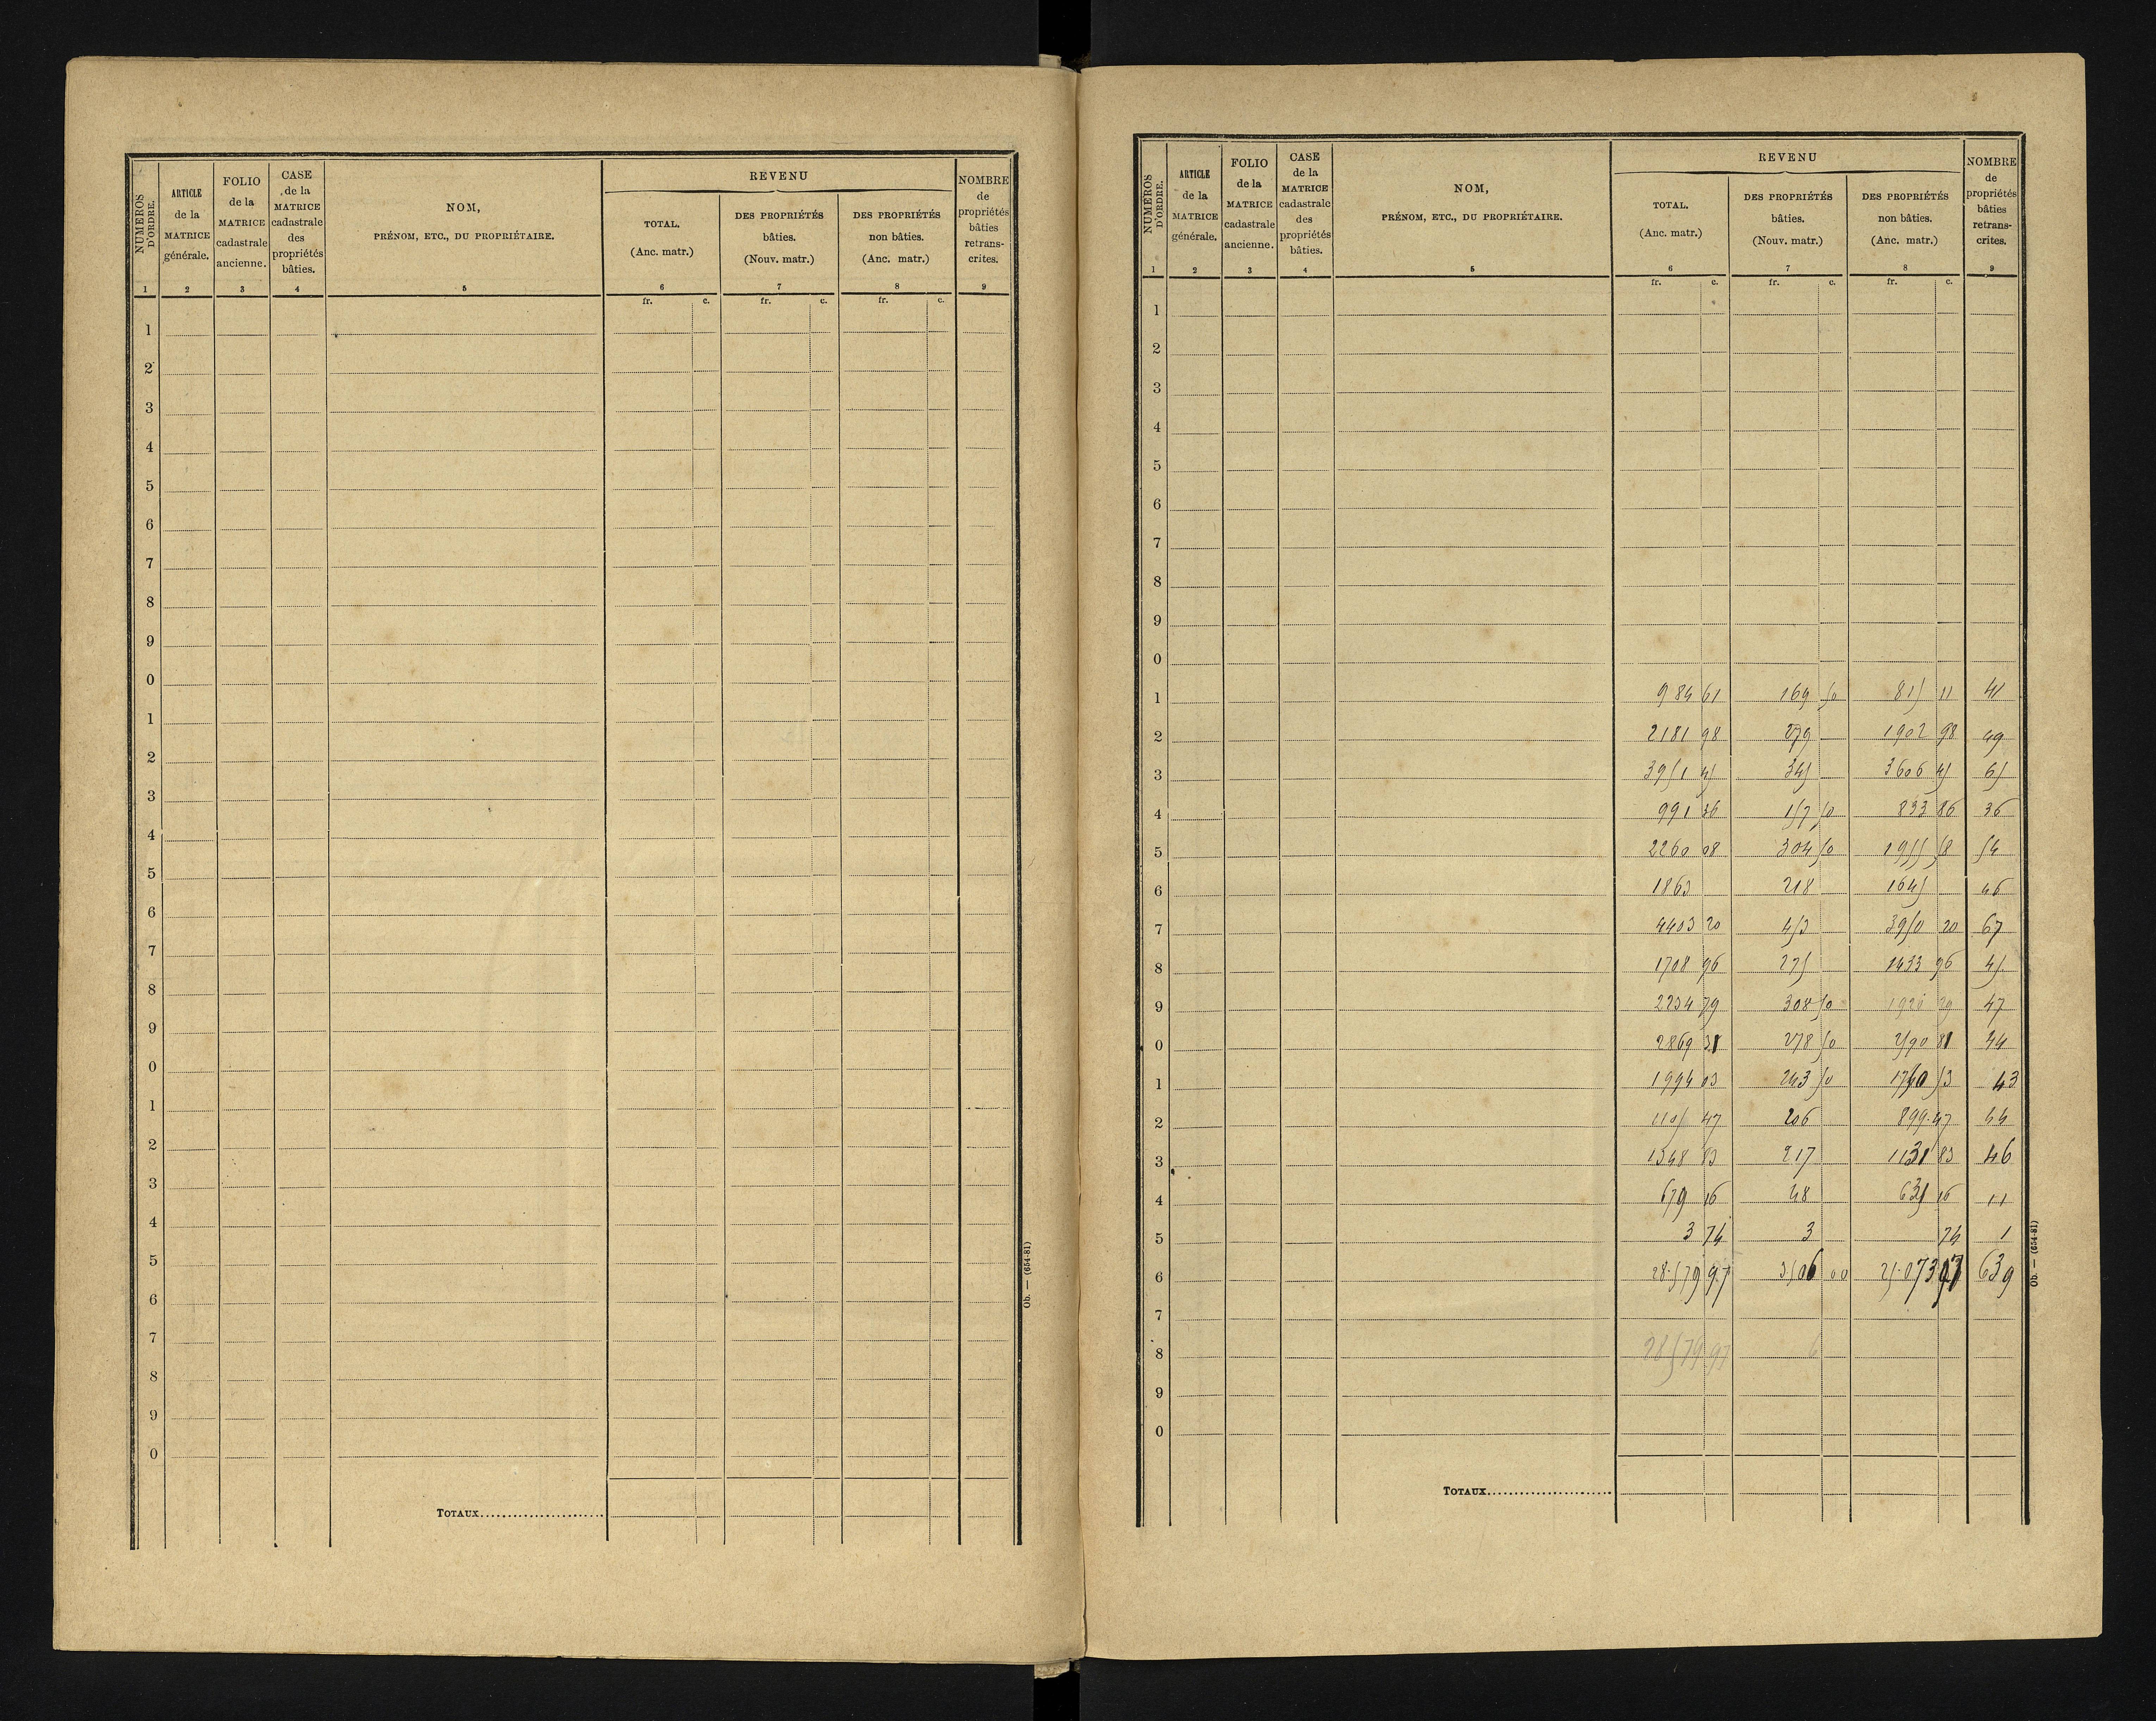 NUMÉROS D'ORDRE.
ARTICLE de la MATRICE générale.
FOLIO de la MATRICE cadastrale ancienne.
CASE de la MATRICE cadastrale des propriétés bâties.
NOM,
PRÉNOM, ETC., DU PROPRIÉTAIRE.
REVENU
TOTAL. (Anc. matr.)
DES PROPRIÉTÉS bâties. (Nouv. matr.)
DES PROPRIÉTÉS non bâties. (Anc. matr.)
NOMBRE de propriétés bâties retrans- crites.
1 2 3 4 5 6 7 8 9
fr. c. fr. c. fr. c.
1
2
3
4
5
6
7
8
9
0
1
2
3
4
5
6
7
8
9
0
1
2
3
4
5
6
7
8
9
0
TOTAUX
Ob. — (654-81)
NUMÉROS D'ORDRE.
ARTICLE de la MATRICE générale.
FOLIO de la MATRICE cadastrale ancienne.
CASE de la MATRICE cadastrale des propriétés bâties.
NOM,
PRÉNOM, ETC., DU PROPRIÉTAIRE.
REVENU
TOTAL. (Anc. matr.)
DES PROPRIÉTÉS bâties. (Nouv. matr.)
DES PROPRIÉTÉS non bâties. (Anc. matr.)
NOMBRE de propriétés bâties retrans- crites.
1 2 3 4 5 6 7 8 9
fr. c. fr. c. fr. c.
1
2
3
4
5
6
7
8
9
0
1 984 61 169 50 815 11 41
2 2181 98 279 1902 98 49
3 3951 45 345 3606 45 65
4 991 36 157 50 833 86 36
5 2260 08 304 50 1955 58 54
6 1863 218 1645 46
7 4403 20 453 3950 20 67
8 1708 96 275 1433 96 45
9 2234 79 308 50 1926 29 47
0 2869 31 278 50 2590 81 44
1 1994 03 243 50 1750 53 43
2 1105 47 206 899.47 44
3 1348 83 217 1131 83 46
4 679 16 48 631 16 11
5 3 74 3 74 1
6 28.579 97 3506 00 25.073 97 639
7
8 28579.97 6
9
0
TOTAUX
Ob. — (654-81)